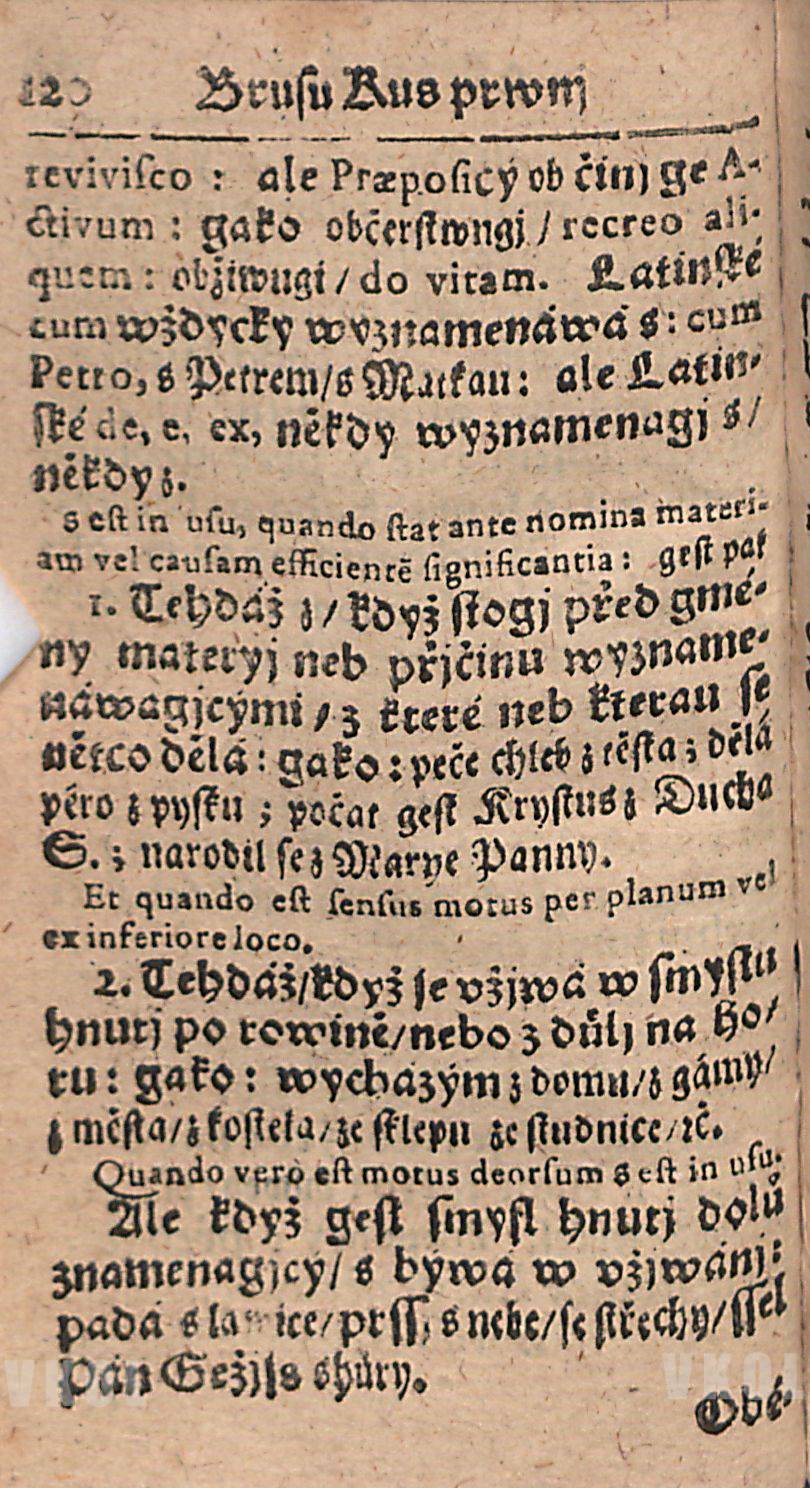 120 Brusu Kus prwnj
revivisco : ale Præposicý ob činj ge A-
ctivum : gako občerstwugj / recreo ali-
quem : obžiwugi / do vitam. Latinské
cum wždycky wyznamenáwá s : cum
Petro, s Petrem/s Matkau : ale Latin-
ské de, e, ex, někdy wyznamenagj s/
někdy z.
s est in usu, quando stat ante nomina materi-
am vel causam efficientē significantia : gest pak
1. Tehdáž z / když stogj před gmé-
ny materyj neb přjčinu wyzname-
náwagjcými / z které neb kterau se
něco dělá : gako : peče chleb z těsta ; dělá
péro z pysku ; počat gest Krystus z Ducha
S. ; narodil se z Marye Panny.
Et quando est sensus motus per planum vel
ex inferiore loco.
2. Tehdáž/když se vžjwá w smyslu
hnutj po rowině/nebo z důlj na ho-
ru : gako : wycházým z domu/z gámy/
z města/z kostela/ze sklepu ze studnice/ꝛč.
Quando verò est motus deorsum s est in usu.
Ale když gest smysl hnutj dolů
znamenagjcý/ s býwá w vžjwánj :
padá s lawice/prssj s nebe/se střechy/ssel
Pán Gežjss shůry.
Obé-
VKOL
VKOL